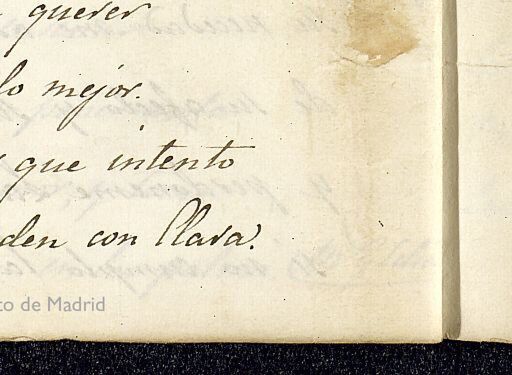 querer
lo mejor.
que intento
den con Clara.
to de Madrid